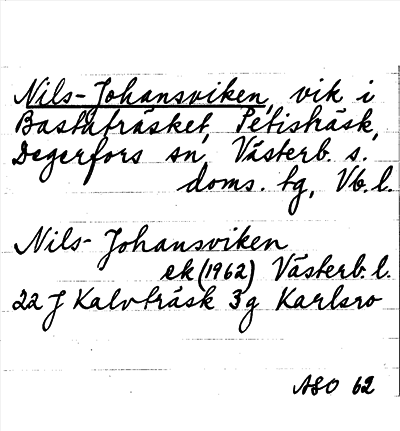 Nils-Johansviken, vik i
Bastuträsket, Petisträsk,
Degerfors sn, Västerb. s.
doms. tg, Vb. l.
Nils-Johansviken
ek (1962) Västerb. l.
22 J Kalvträsk 3g Karlsro
ASO 62